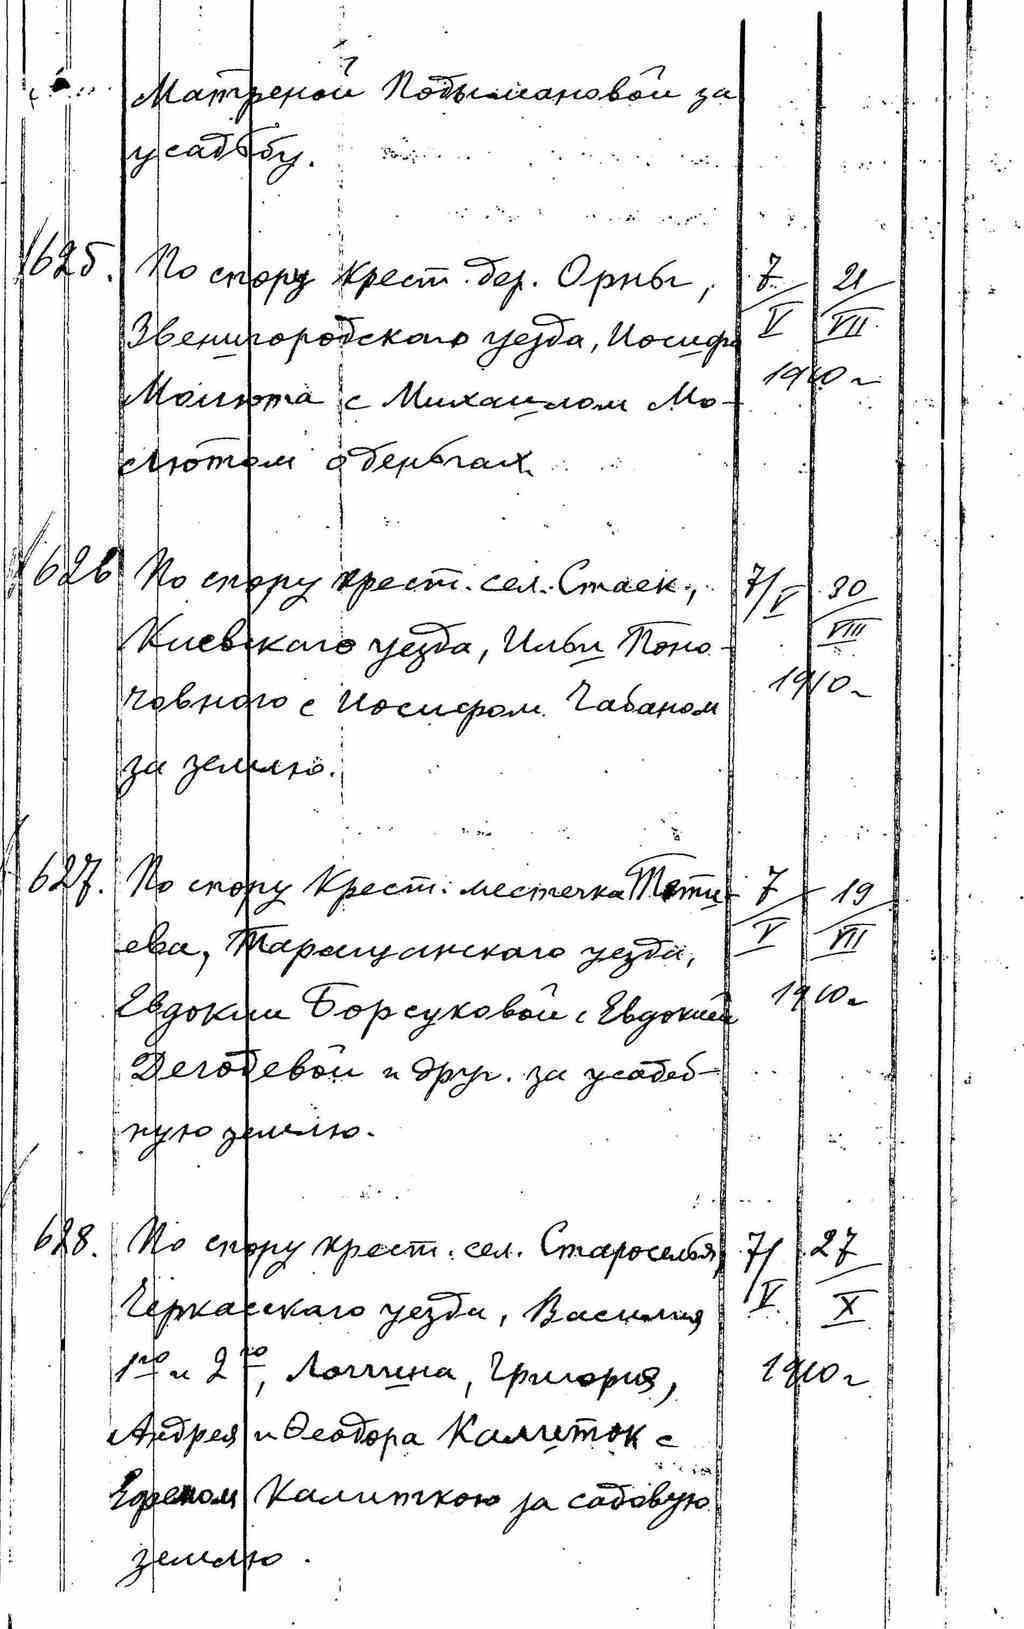 Матреной Подымановой за
усадьбу.
625. По спору крест. дер. Орны, 7/V 21/VII
Звенигородскаго уезда, Иосифа
1910 г
Молюта с Михаилом Мо-
лютом о деньгах.
626 По спору крест. сел. Стаек, 7/V 30/VIII
Киевскаго уезда, Ильи Поно-
човного с Иосифом Чабаном 1910 г
за землю.
627. По спору крест. местечка Тети- 7/V 19/VII
ева, Таращанскаго уезда,
Евдокии Борсуковой с Евдокией 1910 г
Дегодевой и друг. за усадеб-
ную землю.
628. По спору крест. сел. Староселья, 7/V 27/X
Черкасскаго уезда, Василия
1го и 2го, Логгина, Григория, 1910 г
Андрея и Феодора Калиток с
Ефремом Калиткою за садовую
землю.